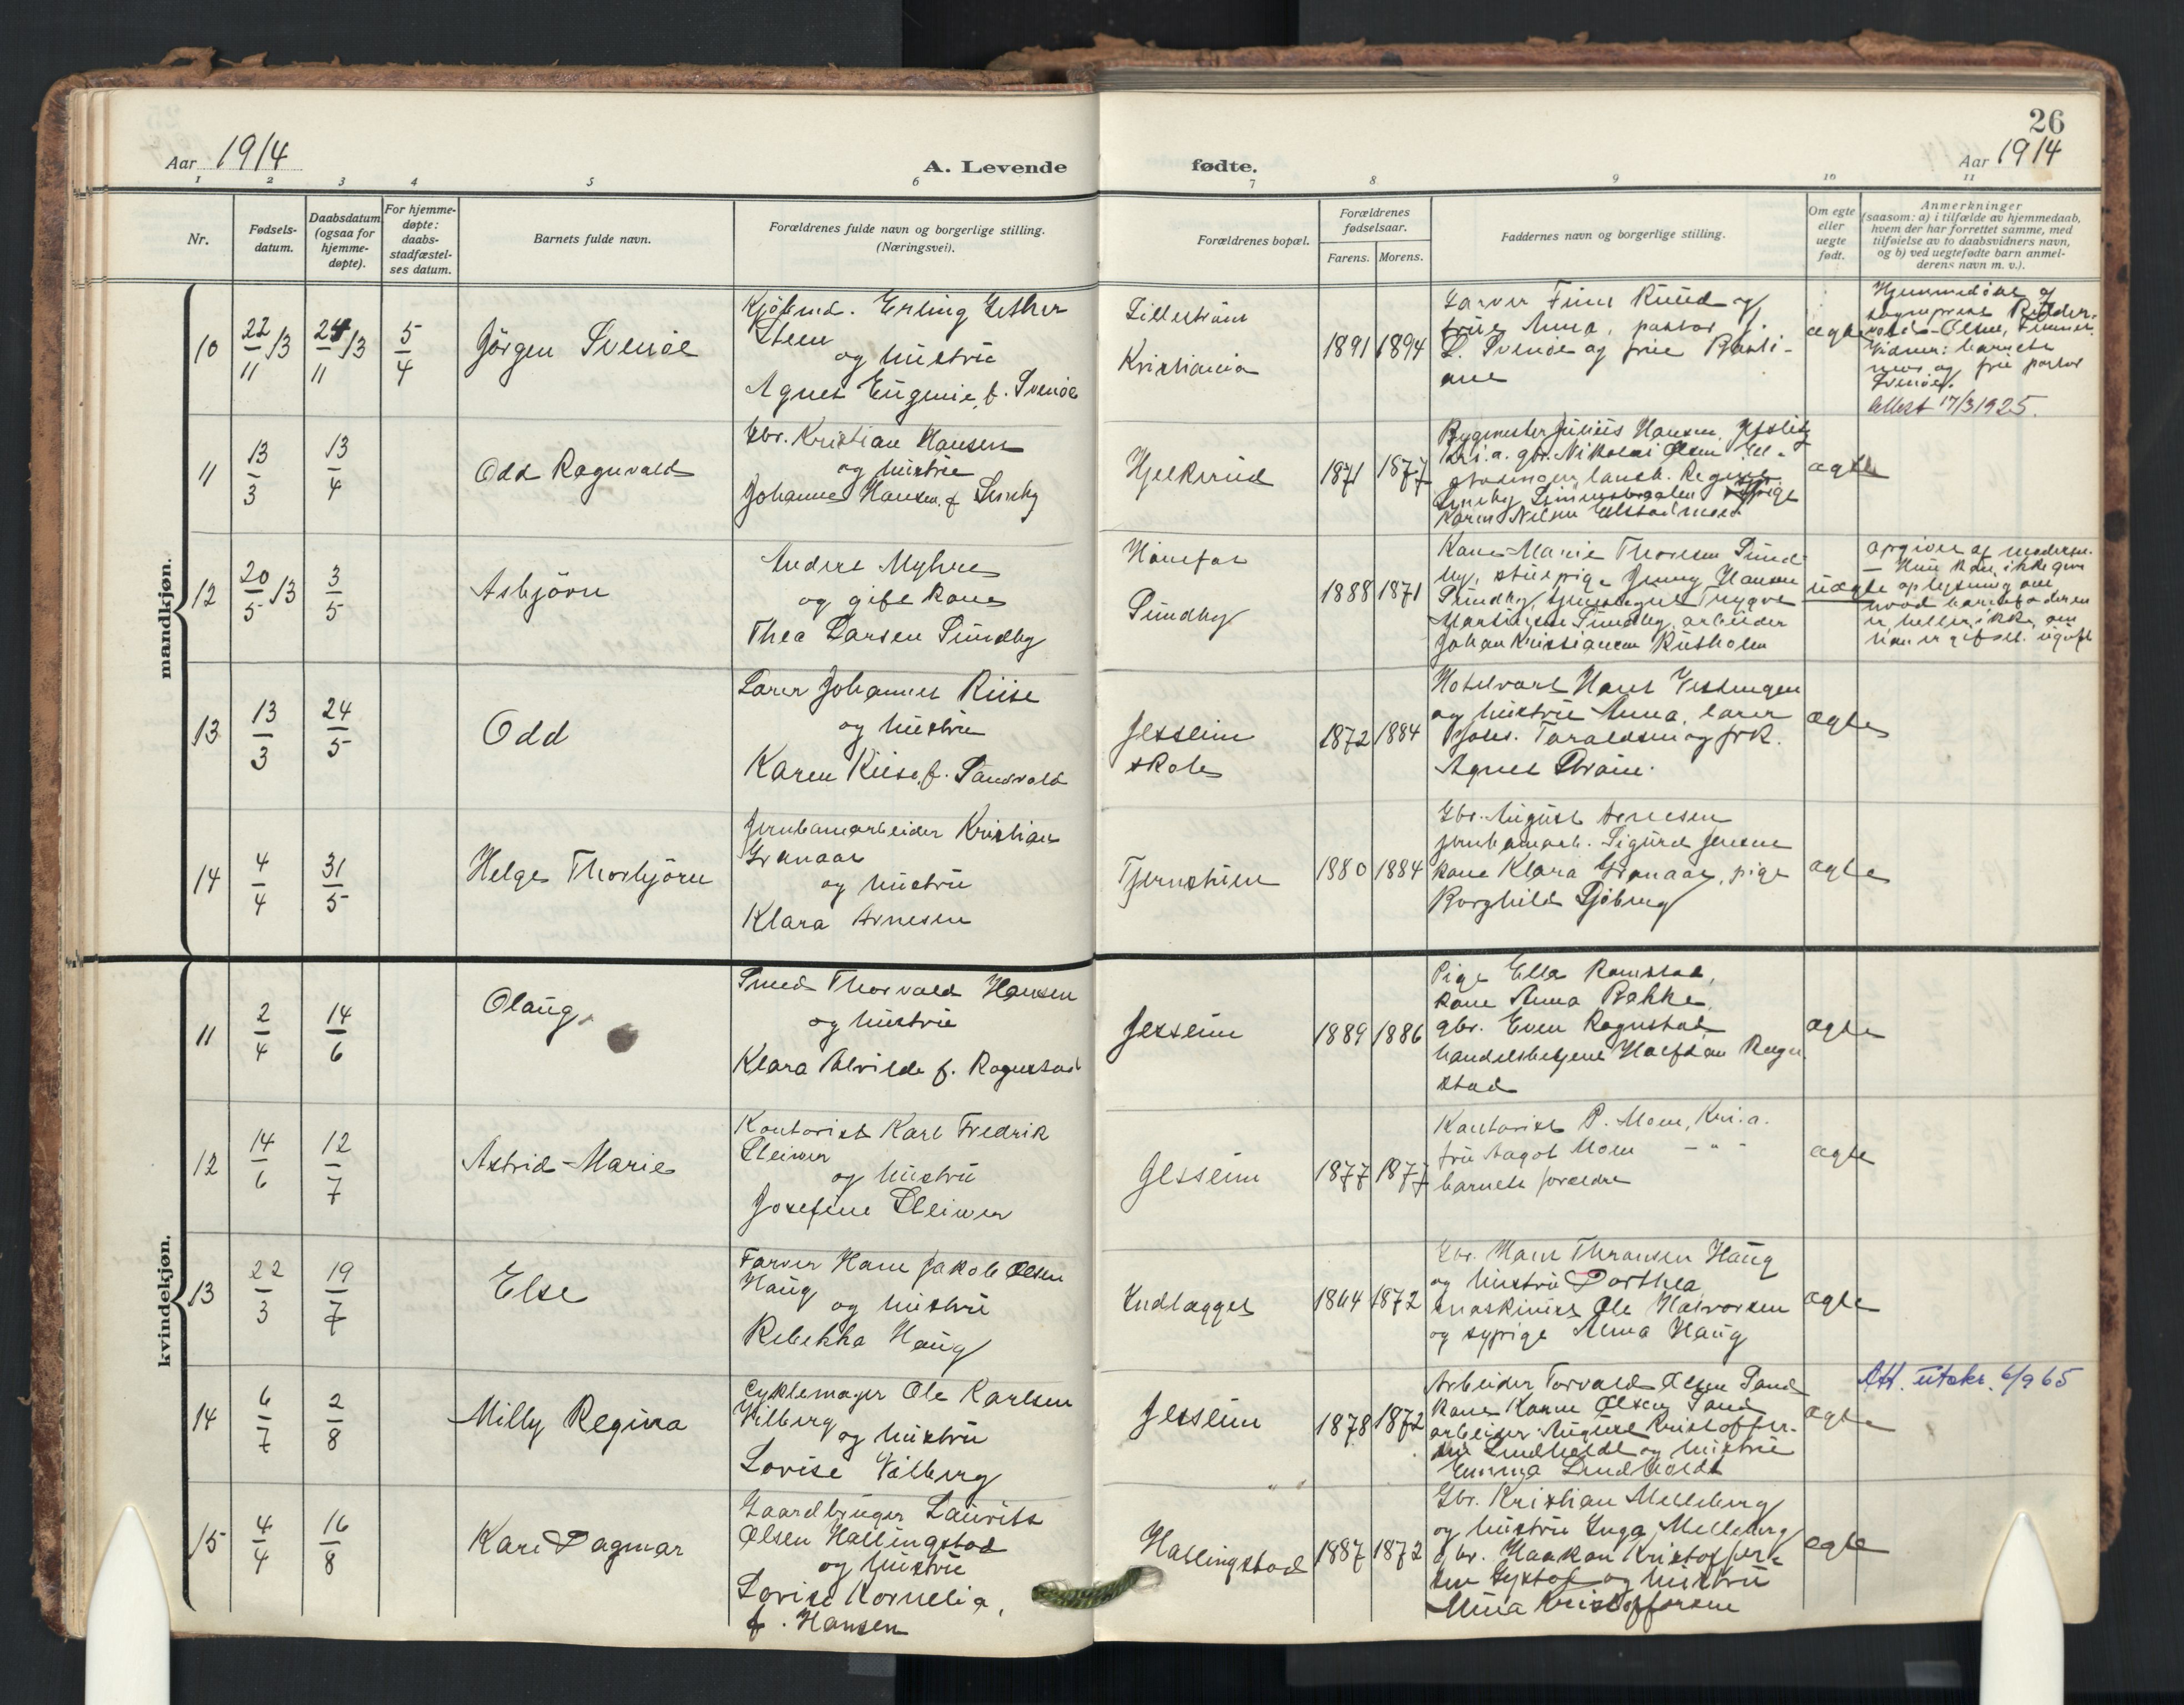 26
Aar 1914
A. Levende fødte.
Aar 1914
1 2 3 4 5 6 7 8 9 10 11
Nr.
Fødsels-
datum.
Daabsdatum
(ogsaa for
hjemme-
døpte).
For hjemme-
døpte:
daabs-
stadfæstel-
ses datum.
Barnets fulde navn.
Forældrenes fulde navn og borgerlige stilling.
(Næringsvei).
Forældrenes bopæl.
Forældrenes
fødselsaar.
Farens. Morens.
Faddernes navn og borgerlige stilling.
Om egte
eller
uegte
født.
Anmerkninger
(saasom: a) i tilfælde av hjemmedaab,
hvem der har forrettet samme, med
tilføielse av to daabsvidners navn,
og b) ved uegtefødte barn anmel-
derens navn m. v.).
mandkjøn.
10
22/11 13
24/11 13
5/4
Jörgen Svenöe
Kjöbmd. Erling Gether
Steen
og hustru
Agnes Eugenie, f. Svenöe
Lillestrøm
Kristiania
1891 1894
Garver Finn Ruud og
frue Anna, pastor J.
L. Svenöe og frue Basti-
ane
ægte
Hjemmedöbt af
sogneprest Ridder-
vold-Olsen,
Vidner: barnets
mor og frue pastor
Svenöe.
Attest 17/3 1925.
11
13/3
13/4
Odd Ragnvald
Gbr. Kristian Hansen
og hustru
Johanne Hansen, f. Lundby
Hjelkrud
1871 1877
Bygmester Julius Hansen,
Kri.a. gbr. Nikolai Olsen
Regine
Lundby, pige
Karen Nilsen
ægte
12
20/5 13
3/5
Asbjörn
Anders Myhre
og gift kone
Thea Larsen Sundby
Hönefos
Sundby
1888 1871
Kone Marie Thoresen Sund-
by, stuepige Jenny Hansen
Sundby, Trygve
Martinsen Sundby, arbeider
Johan Kristiansen Rustholen
uægte
opgivet af moderen.
— Hun kan ikke give
oplysning om
hvad barnefaderen
er, heller ikke om
han er gift el. ugift
13
13/3
24/5
Odd
Lærer Johannes Riise
og hustru
Karen Riise, f. Sandvold
Jessheim
skole
1872 1884
Hotelvært Hans Vestengen
og hustru Anna, lærer
Johs. Taraldsen og frk.
Agnes Thrane.
ægte
14
4/4
31/5
Helge Thorbjörn
Jernbanearbeider Kristian
Granaas
og hustru
Klara Arnesen
Tjernstuen
1880 1884
Gbr. August Arnesen
jernbanearb. Sigurd Jensen
kone Klara Granaas, pige
Borghild Sjöberg
ægte
kvindekjøn.
11
2/4
14/6
Olaug
Smed Thorvald Hansen
og hustru
Klara Alvilde f. Rognstad
Jessheim
1889 1886
Pige Ella Ramstad,
kone Anna Bakke,
gbr. Even Rognstad
handelsbetjent Halfdan Rogn-
stad
ægte
12
14/6
12/7
Astrid-Marie
Kontorist Karl Fredrik
Steiwer
og hustru
Josefine Steiwer
Jessheim
1877 1877
Kontorist P. Moen, Kri.a.
frue Aagot Moen — " —
barnets forældre
ægte
13
22/3
19/7
Else
Farver Hans Jakob Olsen
Haug
og hustru
Rebekka Haug
Indlægget
1864 1872
Gbr. Hans Thransen Haug
og hustru Dorthea,
maskinist Ole Halvorsen
og sypige Anna Haug
ægte
14
6/7
2/8
Milly Regina
Cyklemager Ole Karlsen
Vilberg
og hustru
Lovise Vilberg
Jessheim
1878 1872
Arbeider Torvald Olsen Sand
Kone Karen Olsen Sand
arbeider August Kristoffer-
sen Lindholdt og hustru
Emma Lindholdt
ægte
Att. utskr. 6/9 65
15
4/4
16/8
Kari Dagmar
Gaardbruger Laurits
Olsen Hallingstad
og hustru
Lovise Kornelia,
f. Hansen
Hallingstad
1887 1872
Gbr. Kristian Melleberg
og hustru Inga Melleberg
gbr. Haakon Kristoffer-
sen og hustru
Mina Kristoffersen
ægte